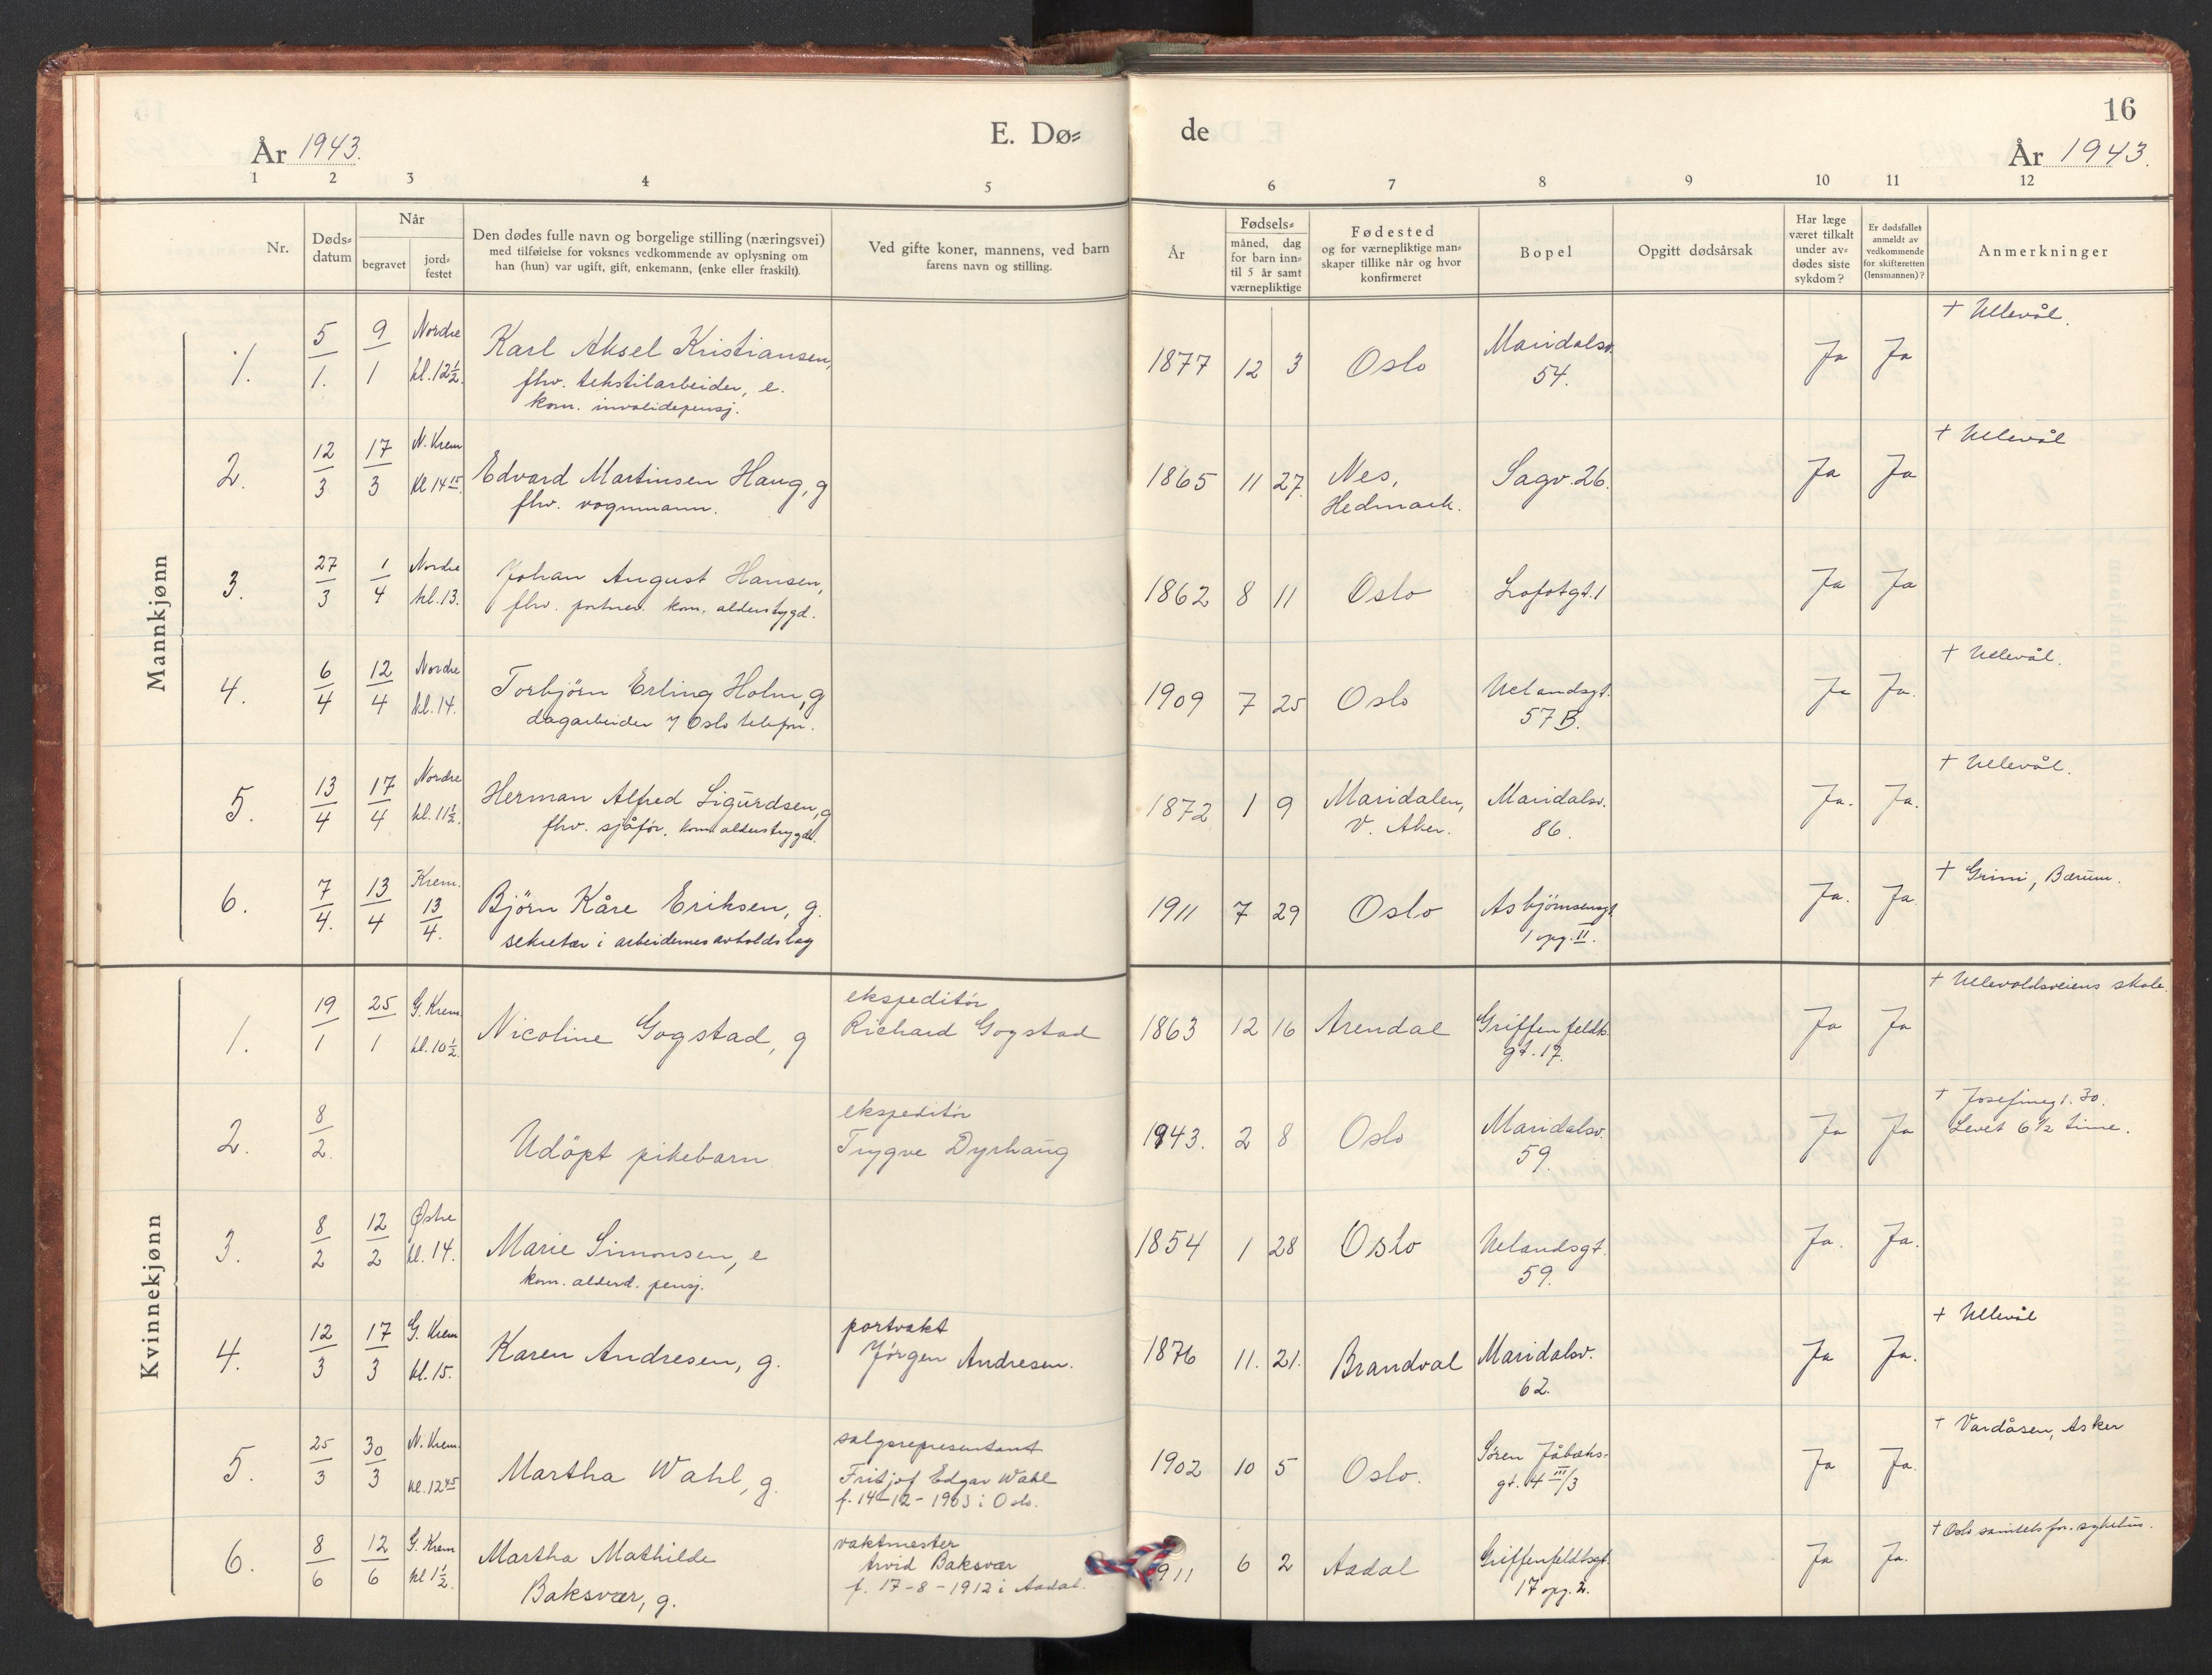 E. Dø= de
16
År 1943.
År 1943.
1 2 3 4 5 6 7 8 9 10 11 12
Nr.
Døds=
datum
Når
begravet
jord=
festet
Den dødes fulle navn og borgelige stilling (næringsvei)
med tilføielse for voksnes vedkommende av oplysning om
han (hun) var ugift, gift, enkemann, (enke eller fraskilt).
Ved gifte koner, mannens, ved barn
farens navn og stilling.
År
Fødsels=
måned, dag
for barn inn=
til 5 år samt
værnepliktige
Fødested
og for værnepliktige man=
skaper tillike når og hvor
konfirmeret
Bopel
Opgitt dødsårsak
Har læge
været tilkalt
under av=
dødes siste
sykdom?
Er dødsfallet
anmeldt av
vedkommende
for skifteretten
(lensmannen)?
Anmerkninger
Mannkjønn
1. 5/1. 9/1 Nordre kl. 12½. Karl Aksel Kristiansen,
fhv. tekstilarbeider, e.
kom. invalidepensj.
1877 12 3 Oslo Maridalsv.
54.
Ja Ja + Ullevål.
2. 12/3 17/3 N. Krem kl 14 15. Edvard Martinsen Haug, g
fhv. vognmann.
1865 11 27. Nes,
Hedmark.
Sagv. 26. Ja Ja + Ullevål
3. 27/3 1/4 Nordre kl. 13. Johan August Hansen,
fhv. portner. kom. alderstygd.
1862 8 11 Oslo Lofotgt. 1 Ja Ja
4. 6/4 12/4 Nordre kl. 14. Torbjörn Erling Holm, g
dagarbeider v/ Oslo telefon.
1909 7 25 Oslo Uelandsgt.
57 B.
Ja Ja. + Ullevål.
5. 13/4 17/4 Nordre kl. 11½. Herman Alfred Sigurdsen, g
fhv. sjåfør. kom alderstrygd.
1872 1 9 Maridalen,
V. Aker.
Maridalsv.
86.
Ja. Ja. + Ullevål.
6. 7/4. 13/4 Krem. 13/4. Björn Kåre Eriksen, g.
sekretær i arbeidernes avholdslag
1911 7 29 Oslo Asbjørnsensgt
1 opg. II.
Ja. Ja. + Grini, Bærum.
Kvinnekjønn
1. 19/1 25/1 G. Krem kl. 10½. Nicoline Gogstad, g
ekspeditör
Richard Gogstad
1863 12 16 Arendal Griffenfeldts
gt. 17.
Ja Ja + Ullevoldsveiens skole.
2. 8/2. Udöpt pikebarn
ekspeditör
Trygve Dyrhaug
1943. 2 8 Oslo Maridalsv.
59.
Ja Ja + Josefinegt. 30.
Levet 6½ time.
3. 8/2 12/2 Østre kl. 14. Marie Simonsen, e
kom. alderd. pensj.
1854 1 28 Oslo Uelandsgt.
59.
Ja. Ja.
4. 12/3 17/3 G. Krem kl. 15. Karen Andresen, g.
portvakt
Jörgen Andresen.
1876 11. 21. Brandval Maridalsv.
62.
Ja Ja. + Ullevål
5. 25/3 30/3 N. Krem. kl. 12 45 Martha Wahl, g.
salgsrepresentant
Fritjof Edgar Wahl
f. 14-12-1903 i Oslo.
1902 10 5 Oslo. Søren Jåbæks-
gt. 4 III/3
Ja Ja. + Vardåsen, Asker
6. 8/6 12/6 G. Krem kl 1½. Martha Mathilde
Baksvær, g.
vaktmester
Arvid Baksvær
f. 17-8-1912 i Aadal.
1911 6 2 Aadal Griffenfeldtsgt.
17 opg. 2.
Ja Ja. + Oslo sanitetsfor. sykehus.